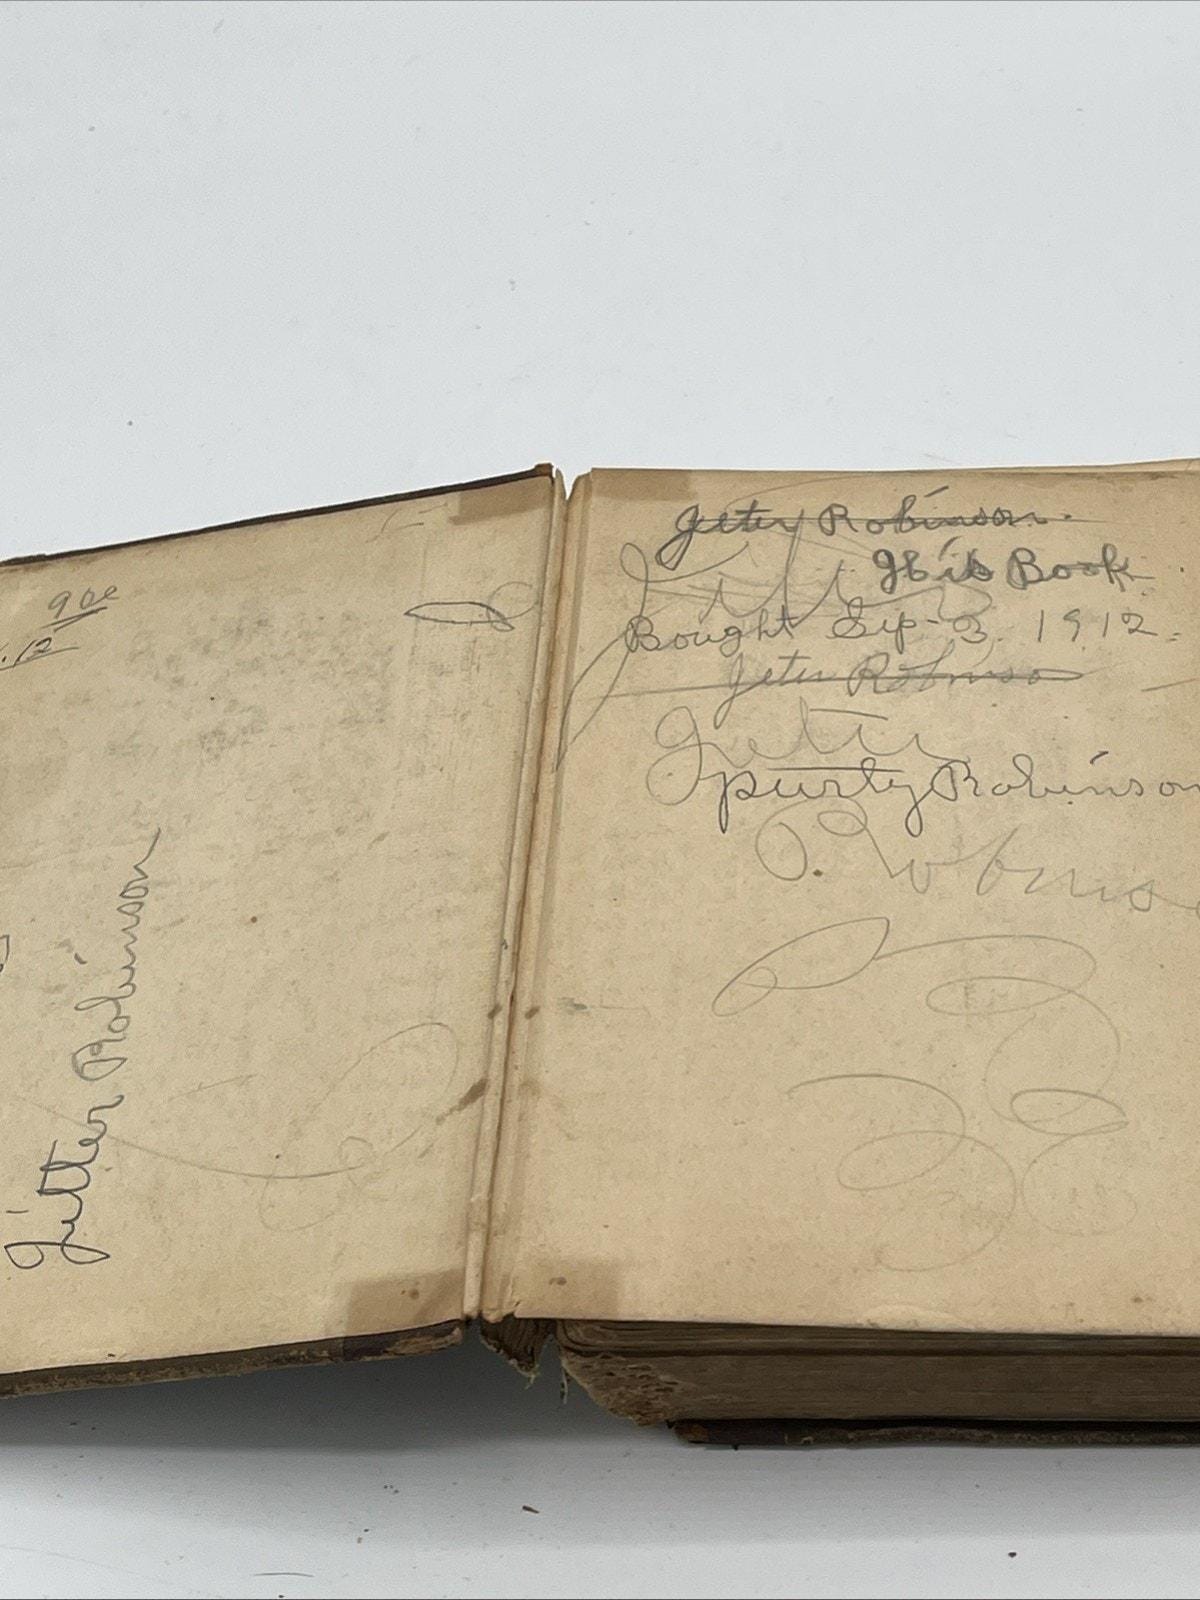 900
.12
Jitter Robinson
Jeter Robinson.
His Book
Bought Sep-3. 1912.
Jeter Robinson
Jeter
purty Robinson
P. Robinso